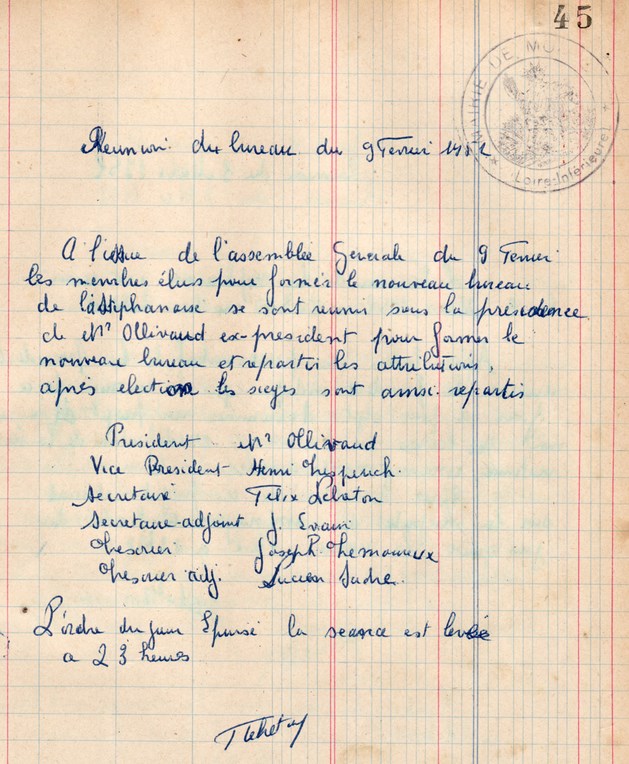 45
MAIRIE DE MO
(Loire-Inférieure)
Réunion du bureau du 9 Fevrier 1952
A l'issue de l'assemblée Generale du 9 Fevrier
les membres élus pour former le nouveau bureau
de la Stéphanoise se sont reunir sous la presidence
de Mr Ollivaud ex-president pour former le
nouveau bureau et repartir les attributions,
après election les sieges sont ainsi repartis
President Mr Ollivaud
Vice President Henri
Secretaire Felix
Secretaire-adjoint J. Evain
Tresorier Joseph
Tresorier adj. Lucien
L'ordre du jour Epuisé la seance est levée
a 23 heures